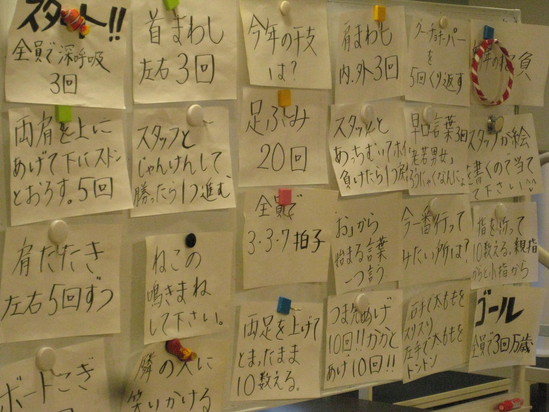 スタート!!
全員で深呼吸
3回
首まわし
左右3回
今年の干支
は?
肩まわし
内.外3回
グーチョキパー
を
5回くり返す
負
両肩を上に
あげて下にストン
とおろす。5回
スタッフと
じゃんけんして
勝ったら1つ進む
足ぶみ
20回
スタッフと
あっちむいてホイ
負けたら1つ
早口言葉3回
スタッフが絵
書くので当て
て下さい!!
肩たたき
左右5回ずつ
ねこの
鳴きまね
して下さい。
全員で
3・3・7拍子
「お」から
始まる言葉
一つ言う
今一番行って
みたい所は?
指を折って
10数える。親指
から小指から
ボートこぎ
隣の人に
笑いかける
両足を上げて
とまったまま
10数える。
つま先あげ
10回!!かかと
あげ10回!!
右手で太ももを
スリスリ
左手で太ももを
トントン
ゴール
全員で3回万歳